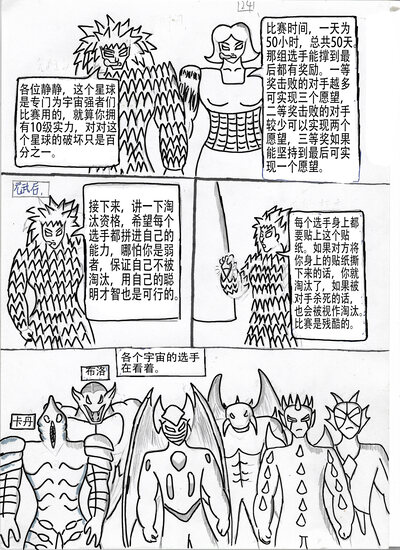 124
比赛时间，一天为
50小时，总共50天。
那组选手能撑到最
后都有奖励。一等
奖击败的对手越多
可实现三个愿望，
二等奖击败的对手
较少可以实现两个
愿望，三等奖如果
能坚持到最后可实
现一个愿望。
各位静静，这个星球
是专门为宇宙强者们
比赛用的，就算你拥
有10级实力，对对这
个星球的破坏只是百
分之一。
接下来，讲一下淘
汰资格，希望每个
选手都拼进自己的
能力，哪怕你是弱
者，保证自己不被
淘汰，用自己的聪
明才智也是可行的。
每个选手身上都
要贴上这个贴
纸。如果对方将
你身上的贴纸撕
下来的话，你就
淘汰了，如果被
对手杀死的话，
也会被视作淘汰。
比赛是残酷的。
各个宇宙的选手
在看着。
布洛
卡丹